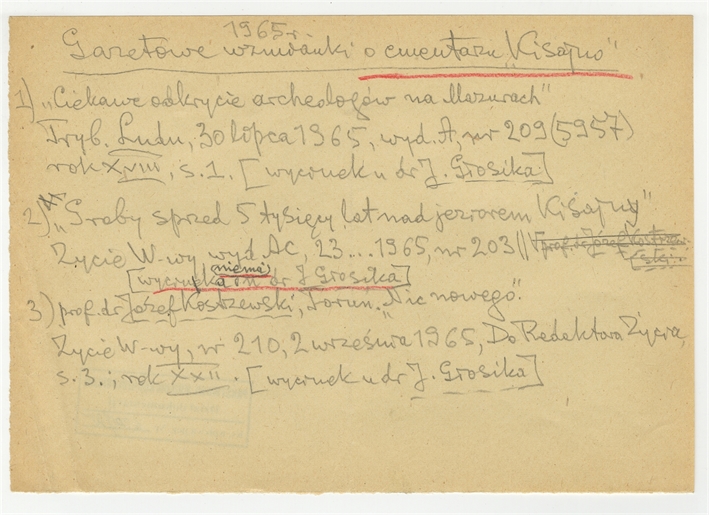 1965 r.
Gazetowe wzmianki o cmentarzu "Kisajno"
1) „Ciekawe odkrycie archeologów na Mazurach"
Tryb. Ludu, 30 lipca 1965, wyd. A, nr 209 (5957)
rok XVIII, s. 1. [wycinek u dr J. Grosika]
2) „Groby sprzed 5 tysięcy lat nad jeziorem Kisajny"
Życie W-wy wyd AC, 23 ... 1965, nr 203 // prof. dr Józef Kostrzew
ski.
niema
[wycinka u dr J Grosika]
3) prof. dr Józef Kostrzewski, Toruń. „Nic nowego".
Życie W-wy, nr 210, 2 września 1965, Do Redaktora Życia,
s. 3.; rok XXII. [wycinek u dr J. Grosika]